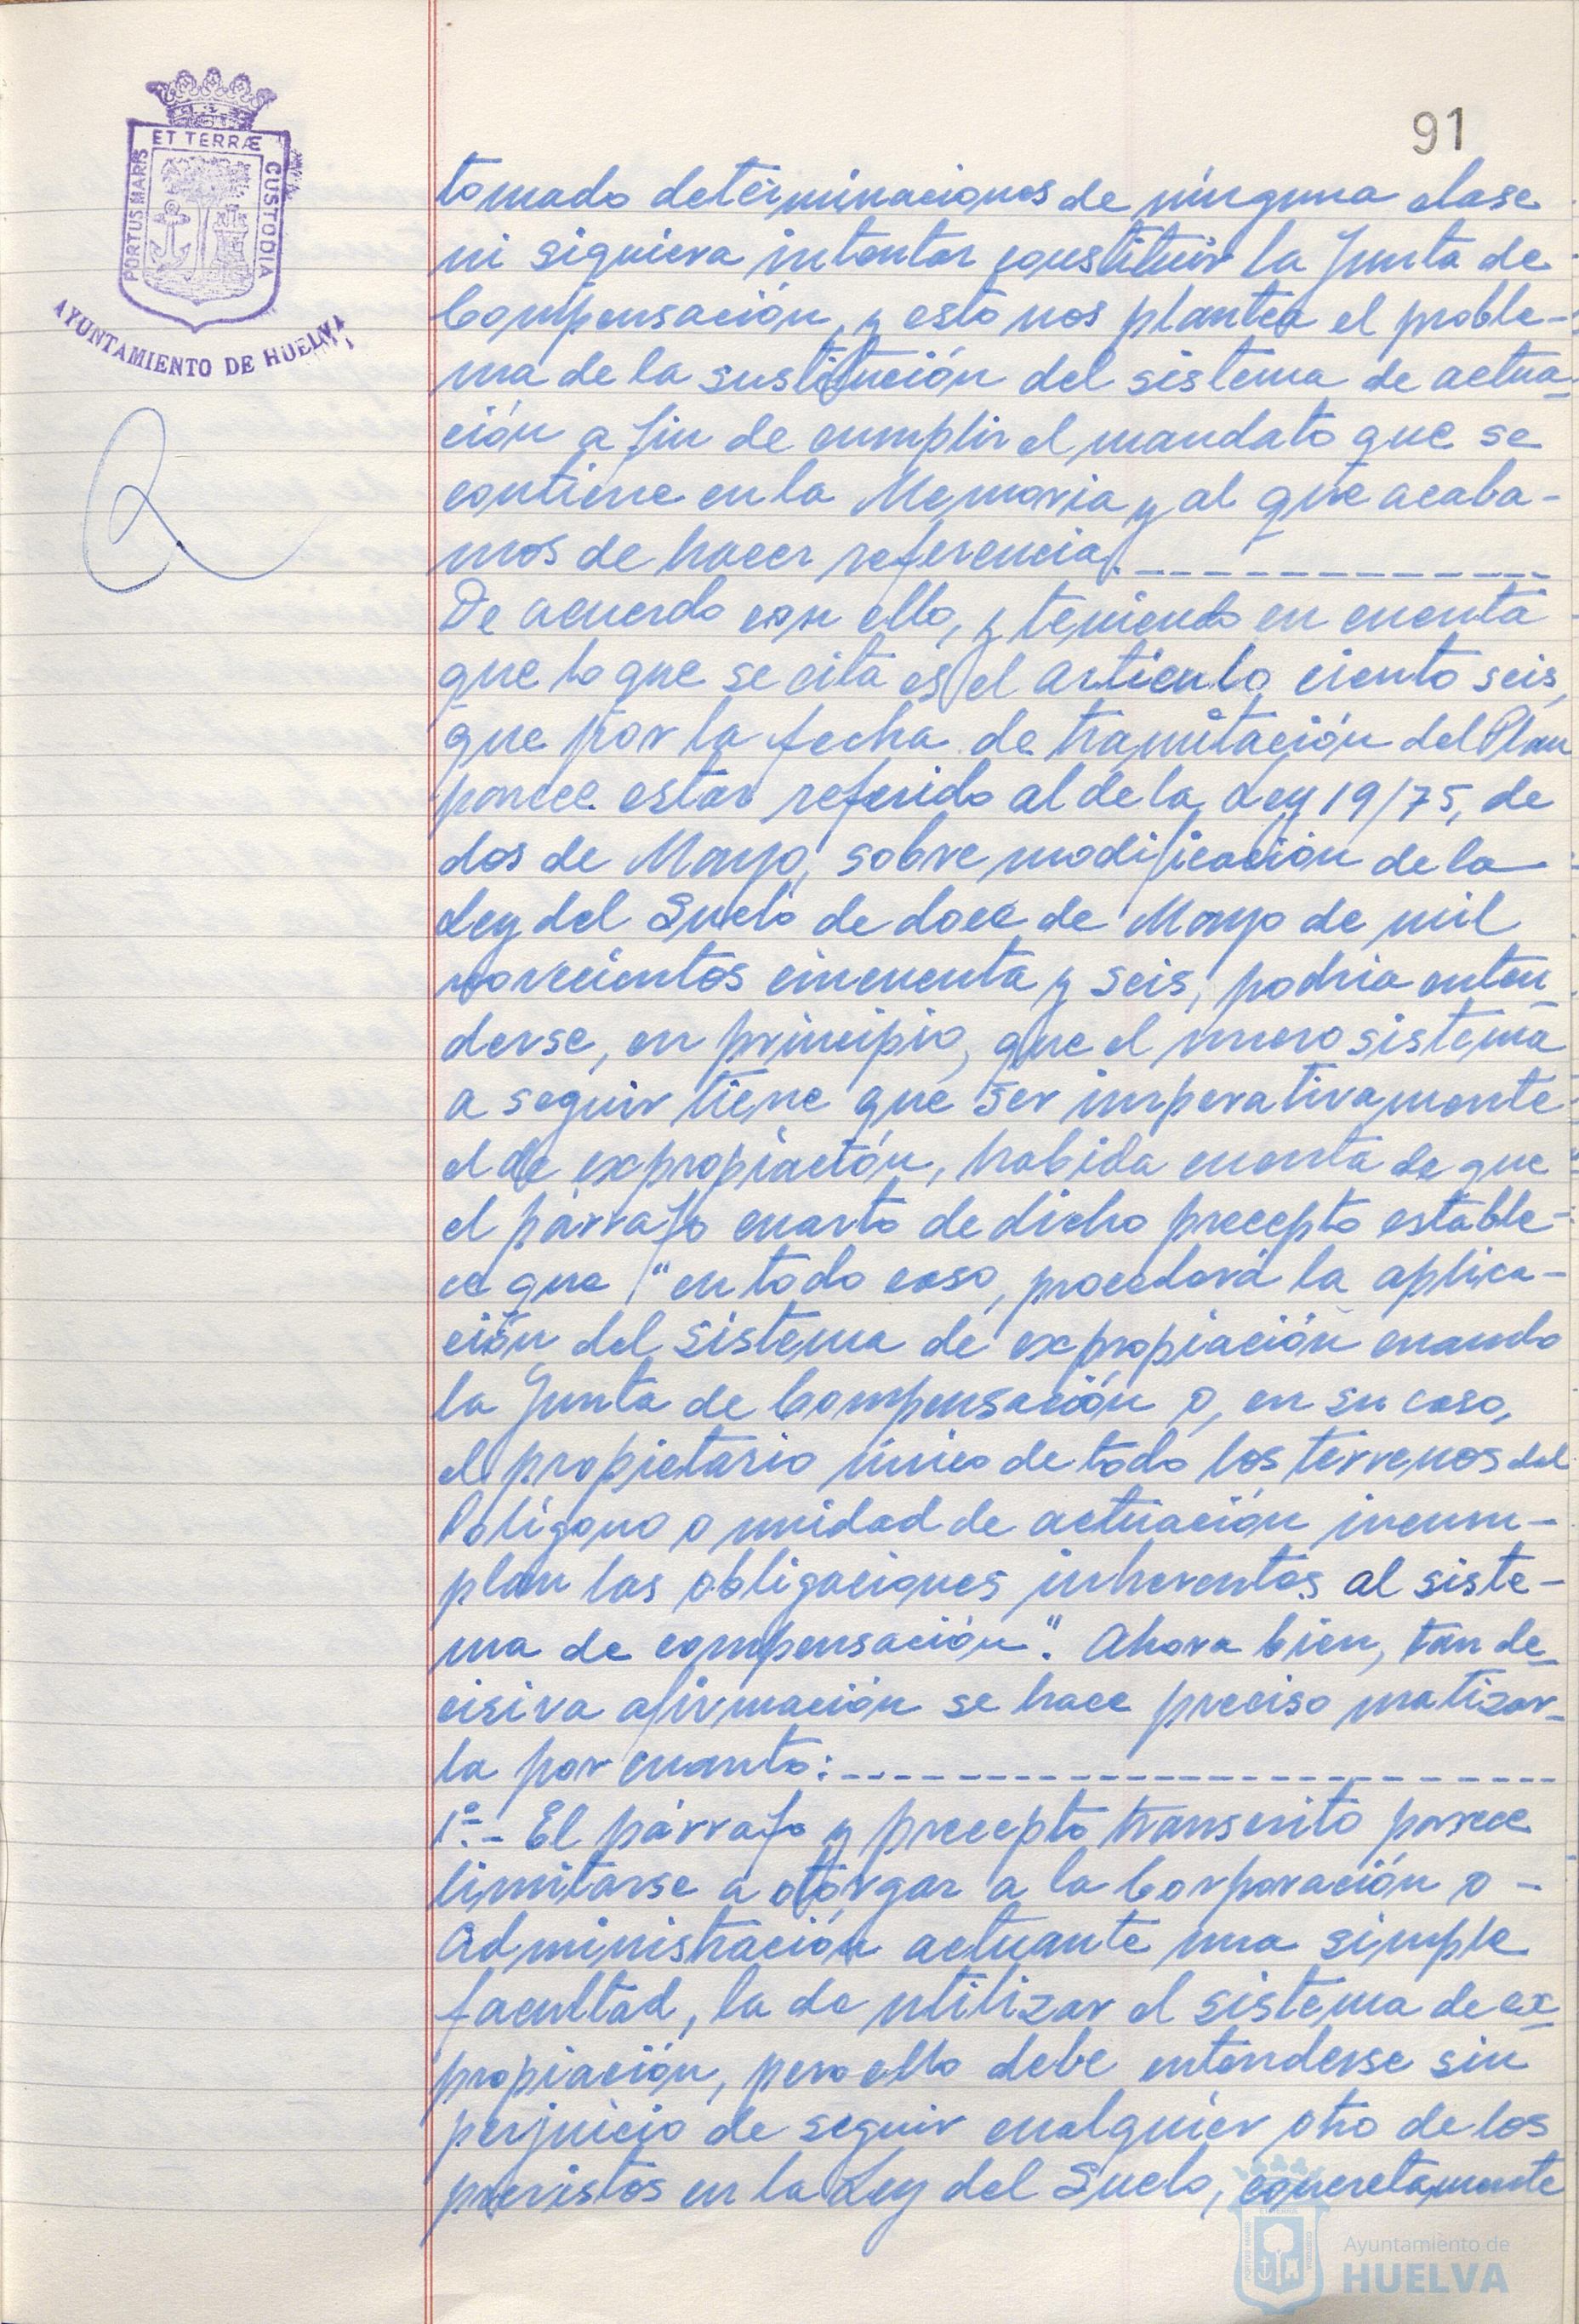 91
ET TERRÆ
PORTUS MARIS
CUSTODIA
AYUNTAMIENTO DE HUELVA
tomado determinaciones de ninguna clase
ni siquiera intentar constituir la Junta de
Compensación, y esto nos plantea el proble-
ma de la sustitución del sistema de actua-
ción a fin de cumplir el mandato que se
contiene en la Memoria y al que acaba-
mos de hacer referencia.
De acuerdo con ello, y teniendo en cuenta
que lo que se cita es el artículo ciento seis,
que por la fecha de tramitación del Plan
parece estar referido al de la Ley 19/75, de
dos de Mayo, sobre modificación de la
Ley del Suelo de doce de Mayo de mil
novecientos cincuenta y seis, podria enten-
derse, en principio, que el nuevo sistema
a seguir tiene que ser imperativamente
el de expropiación, habida cuenta de que
el párrafo cuarto de dicho precepto estable-
ce que "en todo caso, procederá la aplica-
ción del sistema de expropiación cuando
la Junta de Compensación o, en su caso,
el propietario único de todo los terrenos del
Polígono o unidad de actuación incum-
plan las obligaciones inherentes al siste-
ma de compensación". Ahora bien, tan de-
cisiva afirmación se hace preciso matizar-
la por cuanto:
1º.- El párrafo y precepto transcrito parece
limitarse a otorgar a la Corporación o -
Administración actuante una simple
facultad, la de utilizar el sistema de ex-
propiación, pero ello debe entenderse sin
perjuicio de seguir cualquier otro de los
previstos en la Ley del Suelo, concretamente
Ayuntamiento de
HUELVA